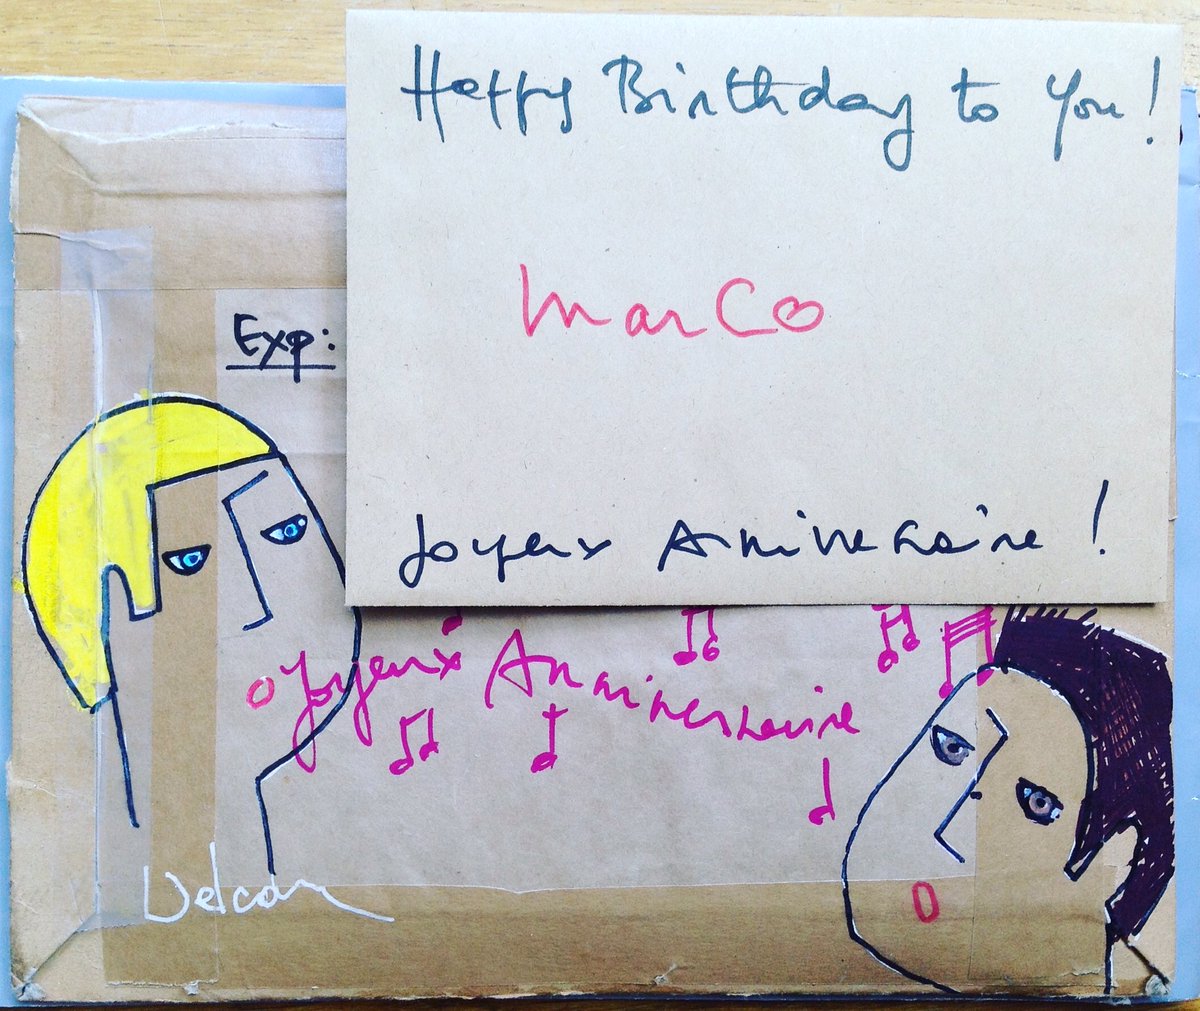 Happy Birthday to you!
MarCo
Exp:
Joyeux Anniversaire!
Joyeux Anniversaire
Velcan